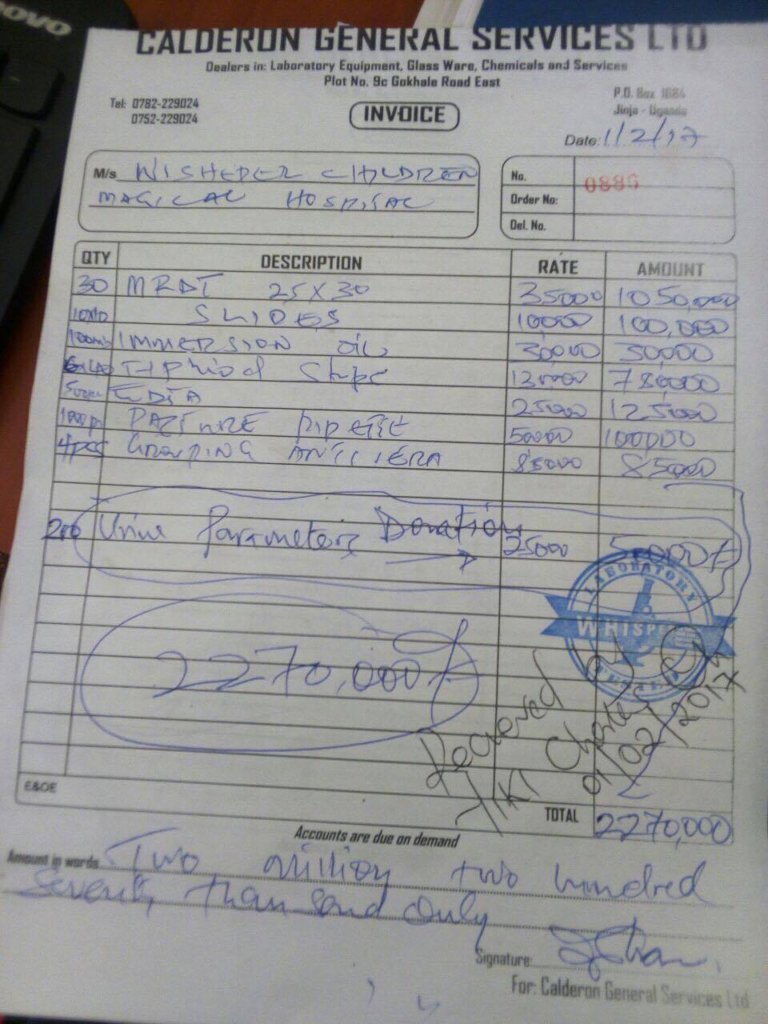 ovo
CALDERON GENERAL SERVICES LTD
Dealers in: Laboratory Equipment, Glass Ware, Chemicals and Services
Plot No. 9c Gokhale Road East
Tel: 0782-229024
0752-229024
P.O. Box 1684
Jinja - Uganda
INVOICE
Date: 1/2/17
M/s WISHEPER CHILDREN
MAGICAL HOSPITAL
No. 0885
Order No:
Del. No.
QTY DESCRIPTION RATE AMOUNT
30 MRDT 25X30 35000 1050,000
10x10 SLIDES 10000 100,000
100mls IMMERSION OIL 30,000 30,000
Strips 13000 780,000
EDTA 25000 125000
PASTURE PIPETTE 50000 100000
4pcs GROUPING ANTICIERA 85000 85000
200 Urine Parameters Donation 25000 50000/
2270,000/
LABORATORY
WHISPE
Received by
01/02/2017
E&OE
TOTAL 2270,000
Accounts are due on demand
Amount in words Two million two hundred
Seventy thousand only
Signature
For: Calderon General Services Ltd